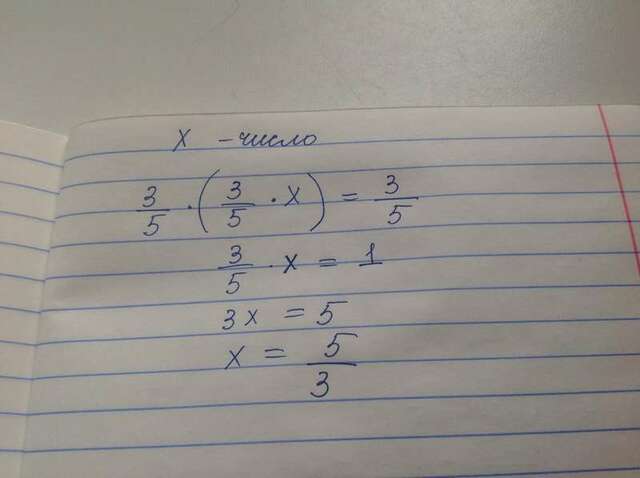 x - число
3/5 · (3/5 · x) = 3/5
3/5 · x = 1
3x = 5
x = 5/3